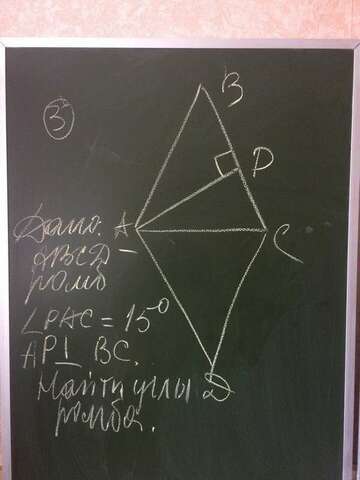 3
B
P
A
C
D
Дано:
ABCD –
ромб
∠PAC = 15°
AP⊥ BC.
Найти углы
ромба.